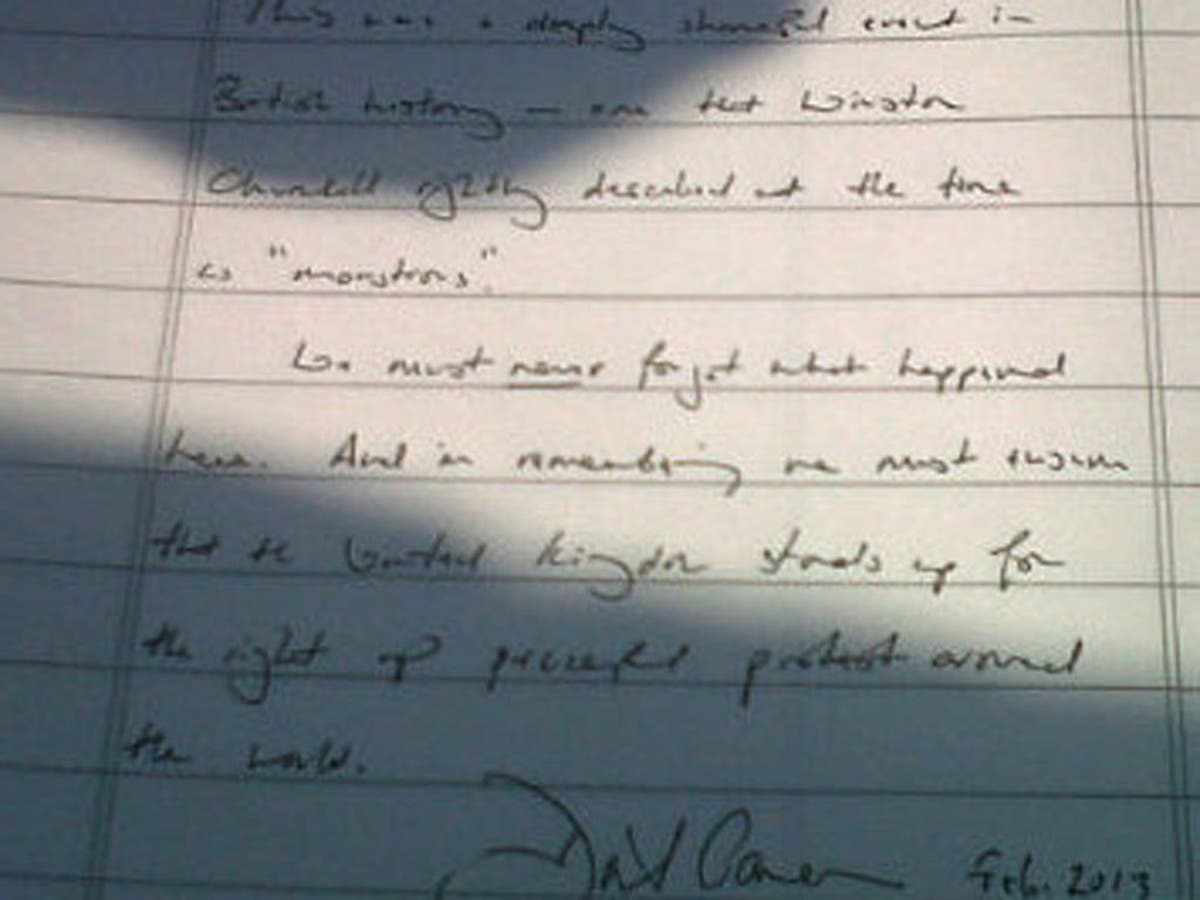 This was a deeply shameful event in
British history – one that Winston
Churchill rightly described at the time
as "monstrous".
We must never forget what happened
here. And in remembering we must ensure
that the United Kingdom stands up for
the right of peaceful protest around
the world.
David Cameron Feb. 2013